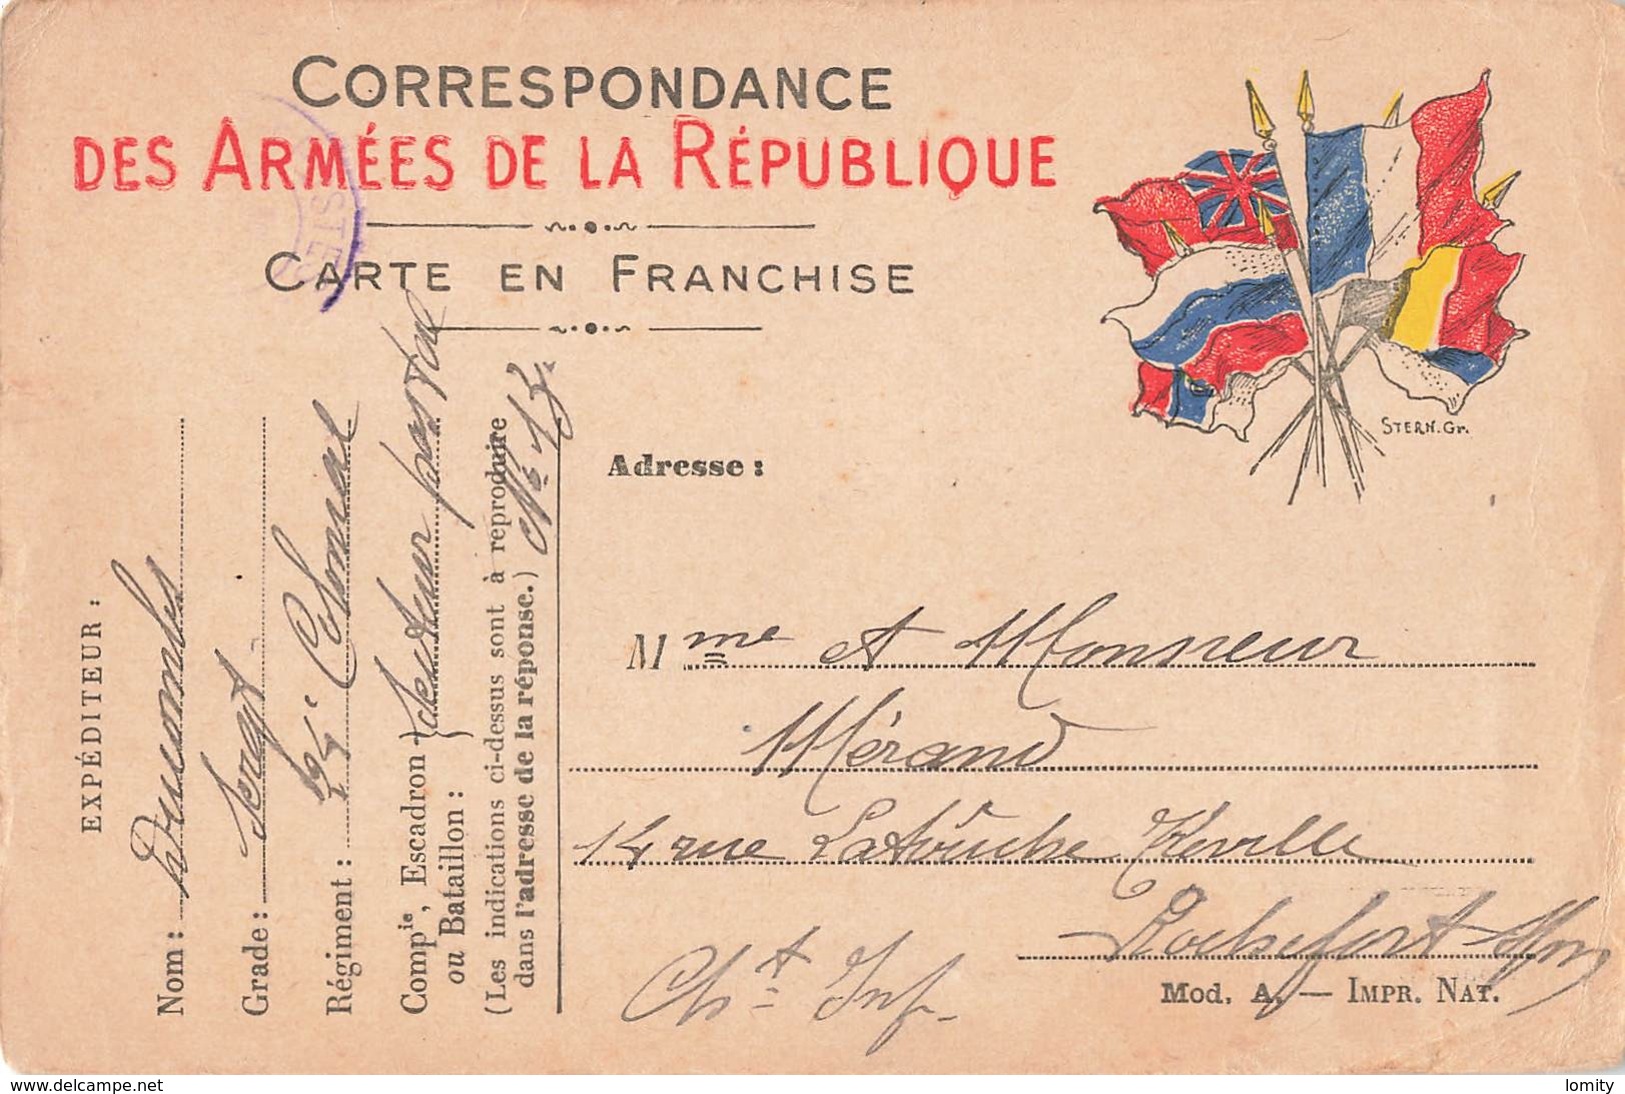 CORRESPONDANCE
DES ARMÉES DE LA RÉPUBLIQUE
CARTE EN FRANCHISE
STERN. Gr.
EXPÉDITEUR :
Nom :
Grade : Sergt
Régiment : 24e Colonial
Compie, Escadron } Secteur postal
ou Bataillon :
(Les indications ci-dessus sont à reproduire
dans l'adresse de la réponse.) No 13.
Adresse :
Mme et Monsieur
Mérand
14 rue Latouche Tréville
Rochefort s/m
Cht Inf.
Mod. A. — IMPR. NAT.
www.delcampe.net
lomity